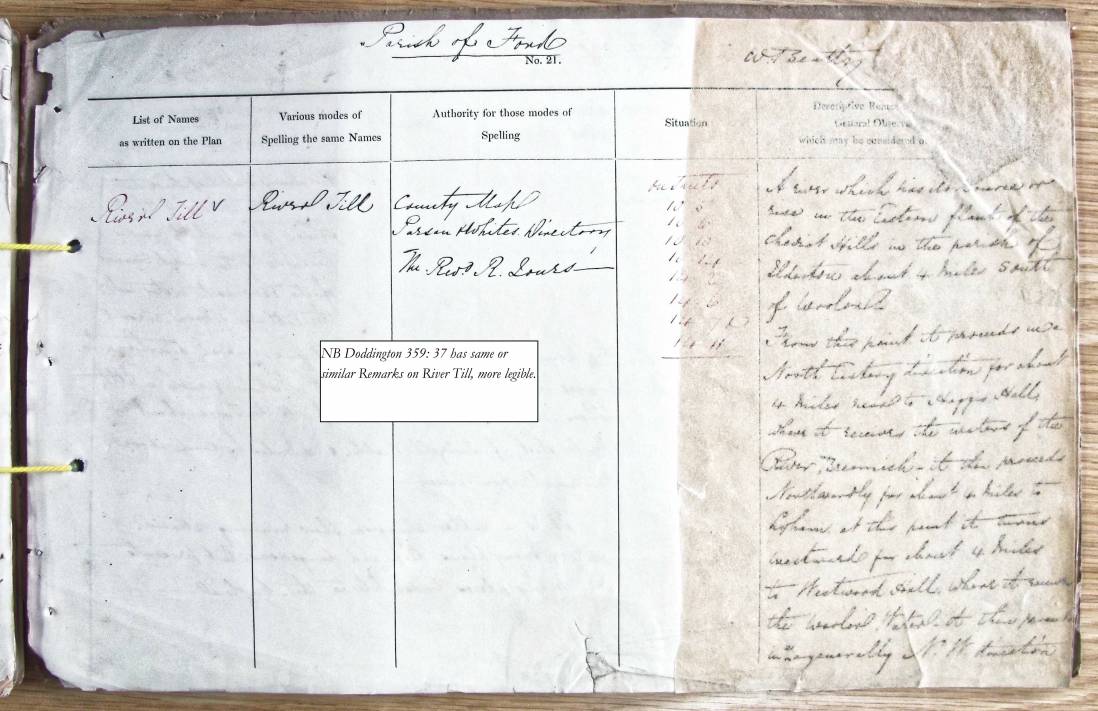 Parish of Ford
No. 21.
W. Beatty
List of Names
as written on the Plan
Various modes of
Spelling the same Names
Authority for those modes of
Spelling
Situation
Descriptive Remarks
General Observa
which may be considered of
River Till
River Till
County Map
Parson & Whites Directory
The Revd. R.
on Traces
10 2
10 6
10 10
10 14
14 2
14 6
14 7
14 11
A river which has its source or
rise in the Eastern flank of the
Cheviot Hills in the parish of
Ilderton about 4 Miles South
of Wooler.
From this point it proceeds in a
North Eastery direction for about
4 Miles near to Heggis Halls
where it receives the waters of the
River Breamish - it then proceeds
Northwardly for about 4 Miles to
at this point it turns
westward for about 4 Miles
to Westwood Hall where it receives
the Wooler Water. At this
in a generally N. W. direction
NB Doddington 359: 37 has same or
similar Remarks on River Till, more legible.